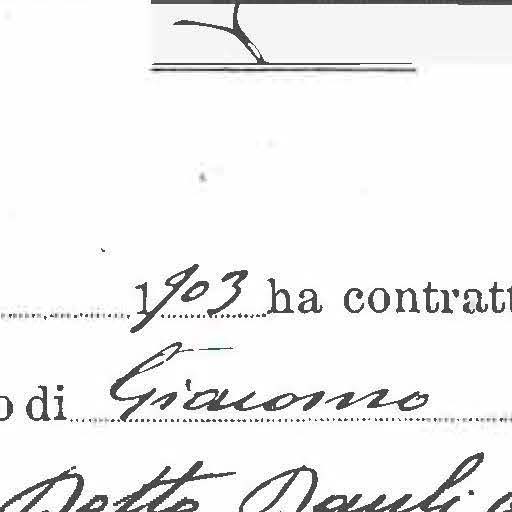 1903 ha contratt
o di Giacomo
Detto Pauli